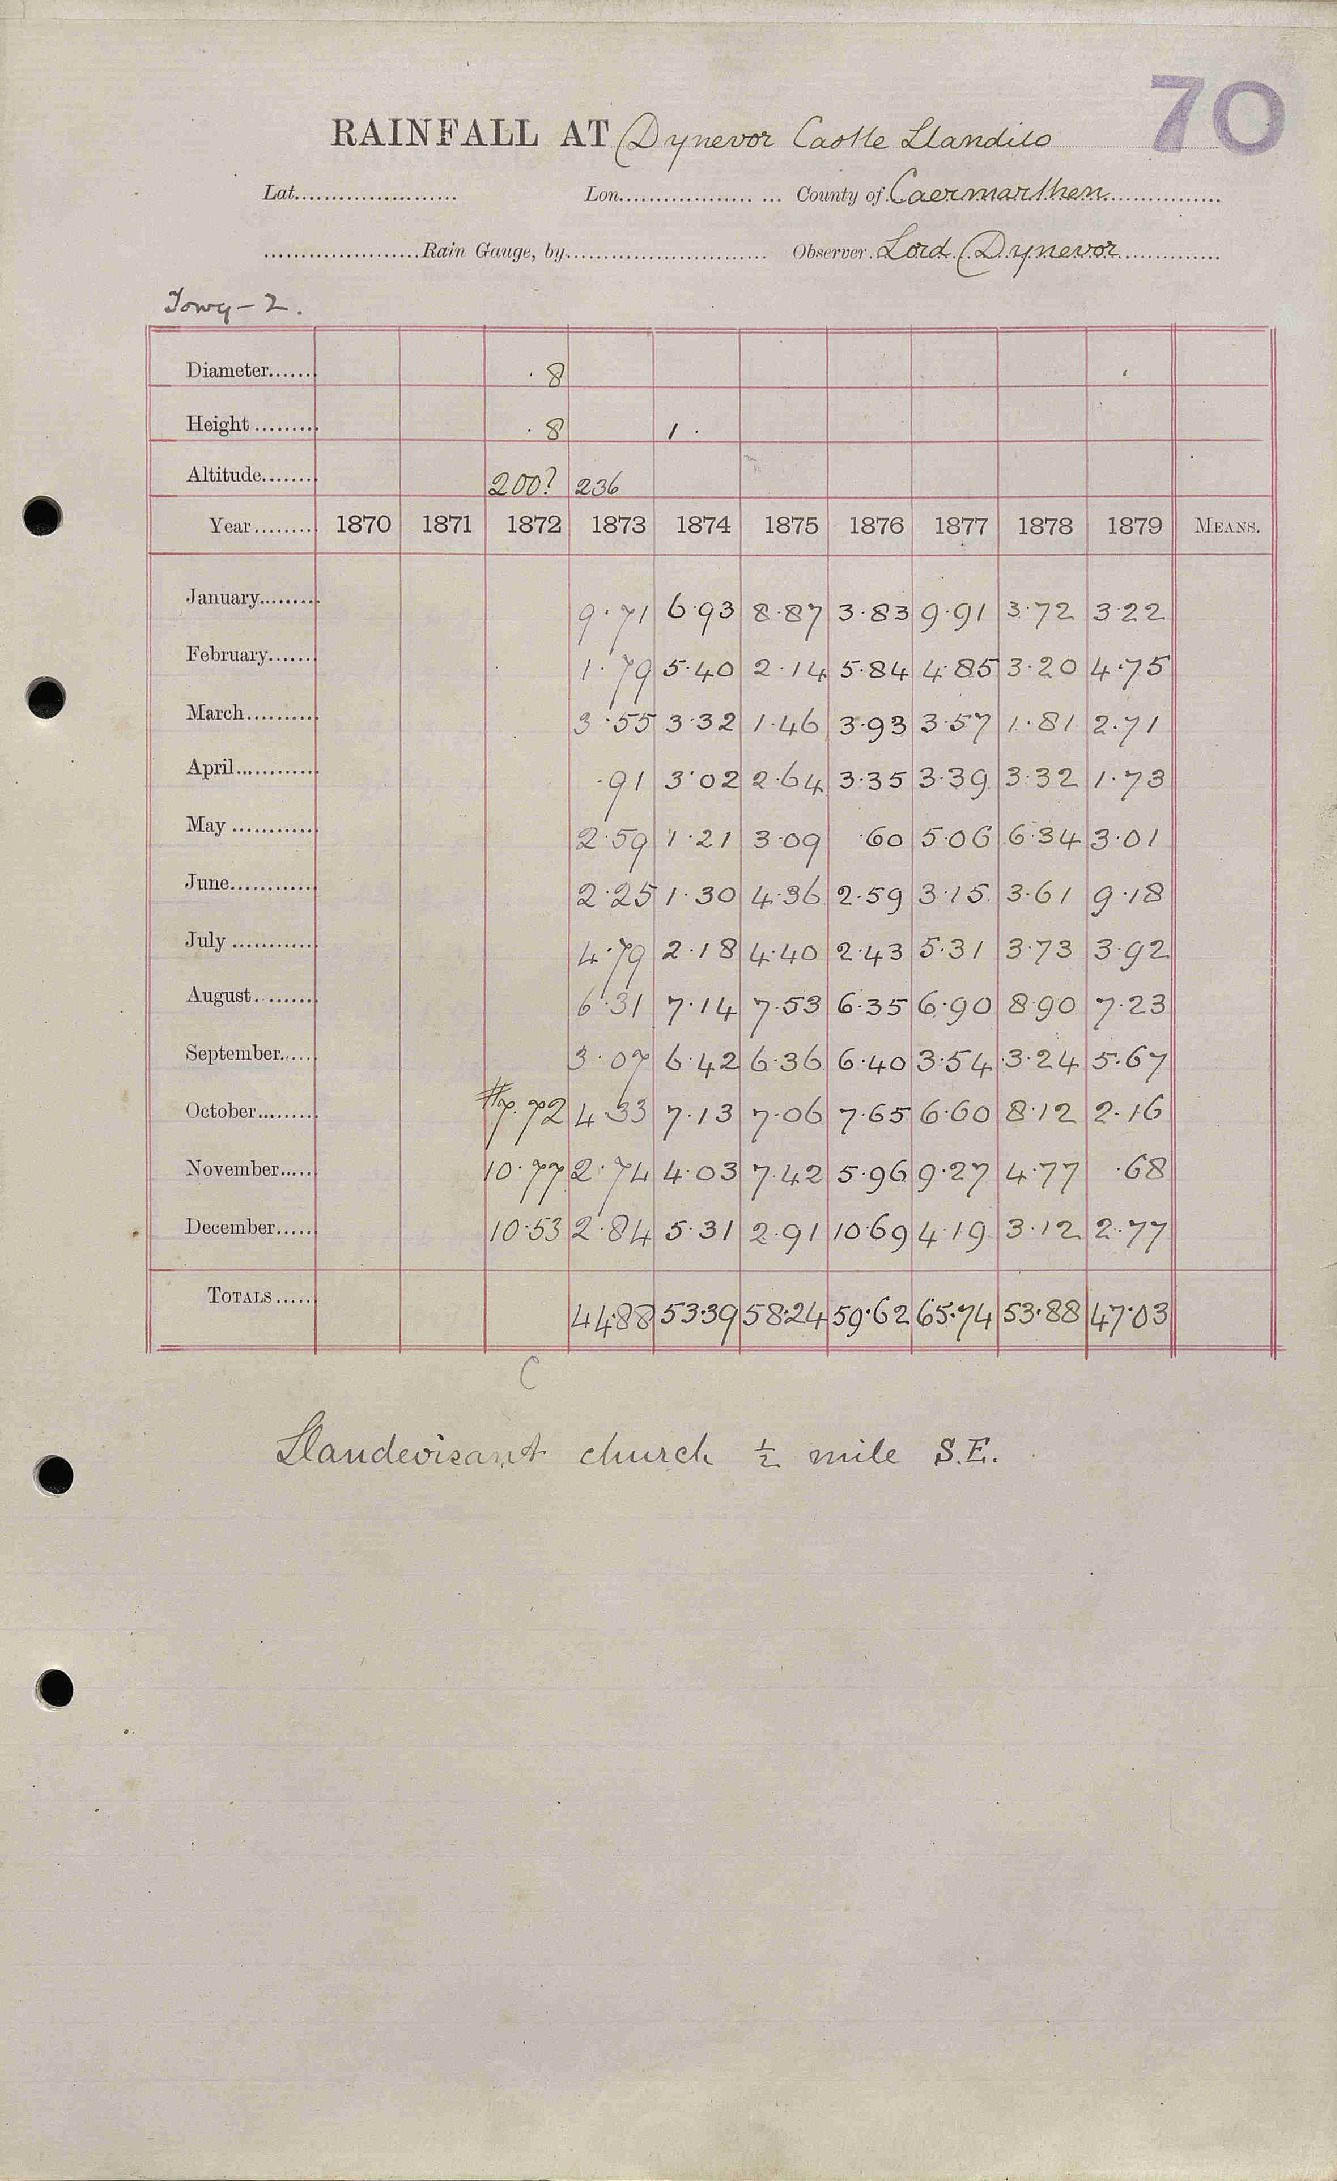 70
RAINFALL AT Dynevor Castle Llandilo
Lat...................... Lon................... ... County of Caermarthen................
.....................Rain Gauge, by........................... Observer. Lord Dynevor..............
Towy - 2.
Diameter....... ·8
Height ......... ·8 1 ·
Altitude........ 200? 236
Year......... 1870 1871 1872 1873 1874 1875 1876 1877 1878 1879 MEANS.
January......... 9·71 6·93 8·87 3·83 9·91 3·72 3·22
February....... 1·79 5·40 2·14 5·84 4·85 3·20 4·75
March.......... 3·55 3·32 1·46 3·93 3·57 1·81 2·71
April............ ·91 3·02 2·64 3·35 3·39 3·32 1·73
May ............ 2·59 1·21 3·09 ·60 5·06 6·34 3·01
June............ 2·25 1·30 4·36 2·59 3·15 3·61 9·18
July ............ 4·79 2·18 4·40 2·43 5·31 3·73 3·92
August......... 6·31 7·14 7·53 6·35 6·90 8·90 7·23
September...... 3·07 6·42 6·36 6·40 3·54 3·24 5·67
October......... #7·72 4·33 7·13 7·06 7·65 6·60 8·12 2·16
November...... 10·77 2·74 4·03 7·42 5·96 9·27 4·77 ·68
December...... 10·53 2·84 5·31 2·91 10·69 4·19 3·12 2·77
TOTALS...... 44·88 53·39 58·24 59·62 65·74 53·88 47·03
C
Llandevisant church ½ mile S.E.